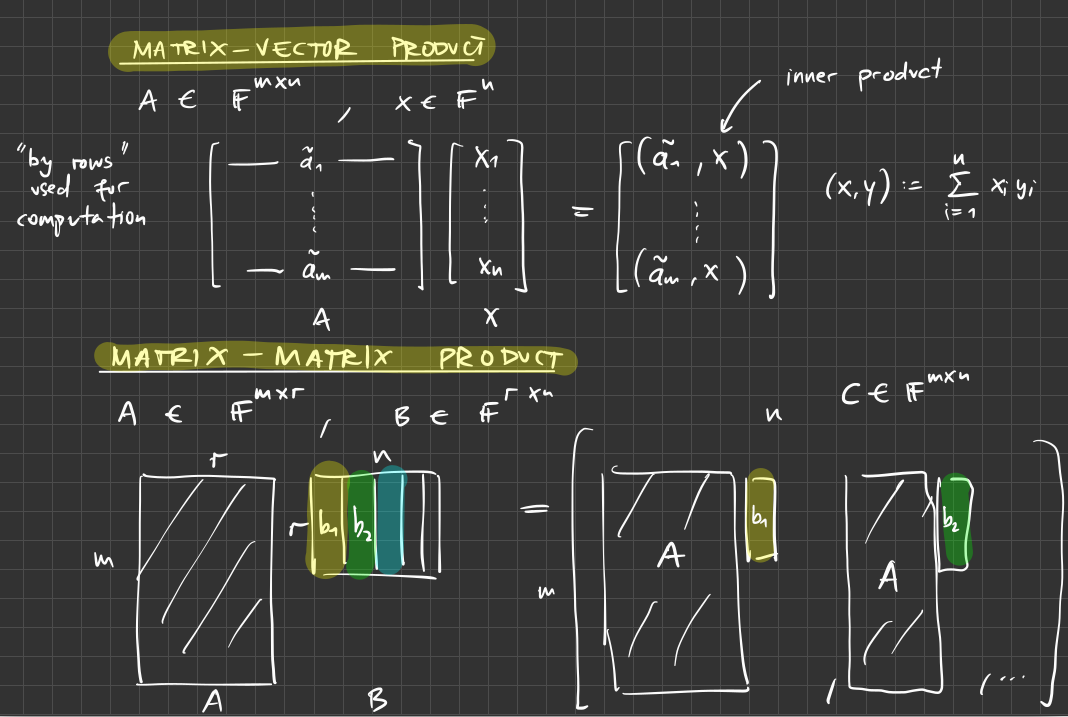 MATRIX-VECTOR PRODUCT
A ∈ 𝔽^{m×n} , x ∈ 𝔽^n
inner product
"by rows"
used for
computation
[ — ã₁ — ⋮ — ã_m — ] [ x₁ ⋮ x_n ] = [ (ã₁, x) ⋮ (ã_m, x) ]
(x,y) := ∑_{i=1}^{n} x_i y_i
A x
MATRIX-MATRIX PRODUCT
A ∈ 𝔽^{m×r} , B ∈ 𝔽^{r×n}
C ∈ 𝔽^{m×n}
r n n
m r b₁ b₂ = m [ A b₁ , A b₂ , ... ]
A B